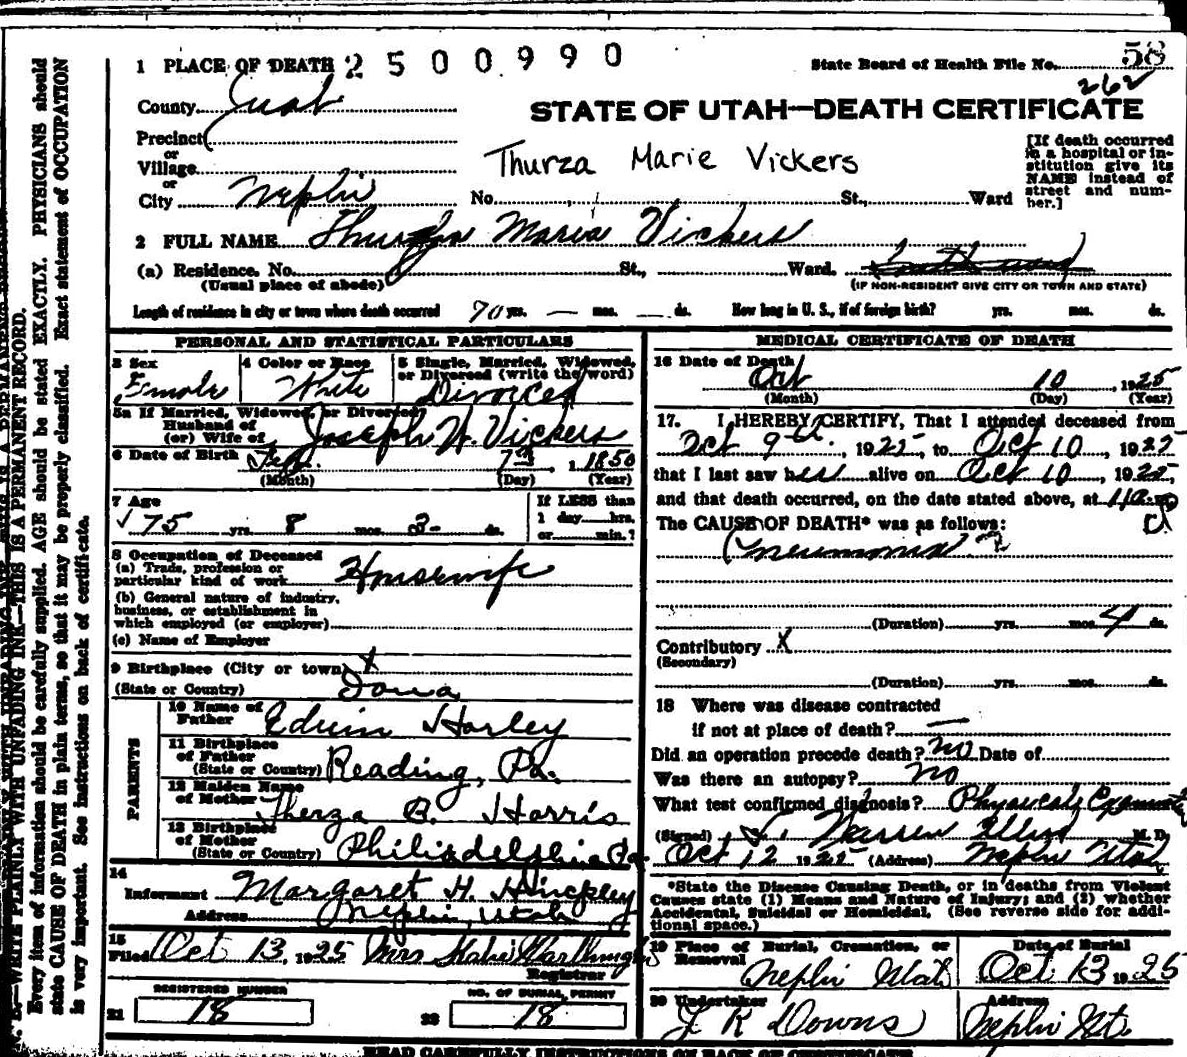 1 PLACE OF DEATH 2500990
State Board of Health File No. 58
262
County Juab
STATE OF UTAH—DEATH CERTIFICATE
Precinct
or
Village
Thurza Marie Vickers
[If death occurred in a hospital or institution give its NAME instead of street and number.]
or
City Nephi No. St., Ward
2 FULL NAME Maria Vickers
(a) Residence. No. St., Ward.
(Usual place of abode)
(IF NON-RESIDENT GIVE CITY OR TOWN AND STATE)
Length of residence in city or town where death occurred 70 yrs. — mos. — ds. How long in U. S., if of foreign birth? yrs. mos. ds.
PERSONAL AND STATISTICAL PARTICULARS
3 Sex Female
4 Color or Race White
5 Single, Married, Widowed, or Divorced (write the word) Divorced
5a If Married, Widowed, or Divorced
Husband of
(or) Wife of Joseph H. Vickers
6 Date of Birth 1850
(Month) (Day) (Year)
7 Age 75 yrs. 8 mos. 3 ds.
If LESS than
1 day hrs.
or min.?
8 Occupation of Deceased
(a) Trade, profession or
particular kind of work Housewife
(b) General nature of industry,
business, or establishment in
which employed (or employer)
(c) Name of Employer
9 Birthplace (City or town) X
(State or Country) Iowa
PARENTS
10 Name of
Father Edwin Harley
11 Birthplace
of Father
(State or Country) Reading, Pa.
12 Maiden Name
of Mother Therza A. Harris
13 Birthplace
of Mother
(State or Country) Philiadelphia Pa.
14
Informant Margaret H. Hinckley
Address Nephi, Utah
15
Filed Oct 13, 1925 Mrs
Registrar
REGISTERED NUMBER
21 18
NO. OF BURIAL PERMIT
22 18
MEDICAL CERTIFICATE OF DEATH
16 Date of Death
Oct 10, 1925
(Month) (Day) (Year)
17. I HEREBY CERTIFY, That I attended deceased from
Oct 9th, 1925, to Oct 10, 1925
that I last saw her alive on Oct 10, 1925,
and that death occurred, on the date stated above, at
The CAUSE OF DEATH* was as follows:
Pneumonia
(Duration) yrs. mos. 4 ds.
Contributory X
(Secondary)
(Duration) yrs. mos. ds.
18 Where was disease contracted
if not at place of death? —
Did an operation precede death? no Date of
Was there an autopsy? no
What test confirmed diagnosis? Physical
(Signed) Warren M. D.
Oct 12 1925 (Address) Nephi Utah
*State the Disease Causing Death, or in deaths from Violent
Causes state (1) Means and Nature of Injury; and (2) whether
Accidental, Suicidal or Homicidal. (See reverse side for addi-
tional space.)
19 Place of Burial, Cremation, or
Removal Nephi Utah
Date of Burial
Oct 13 1925
20 Undertaker
J R Downs
Address
Nephi Ut.
WRITE PLAINLY WITH UNFADING INK—THIS IS A PERMANENT RECORD.
Every item of information should be carefully supplied. AGE should be stated EXACTLY. PHYSICIANS should
state CAUSE OF DEATH in plain terms, so that it may be properly classified. Exact statement of OCCUPATION
is very important. See instructions on back of certificate.
READ CAREFULLY INSTRUCTIONS ON BACK OF CERTIFICATE